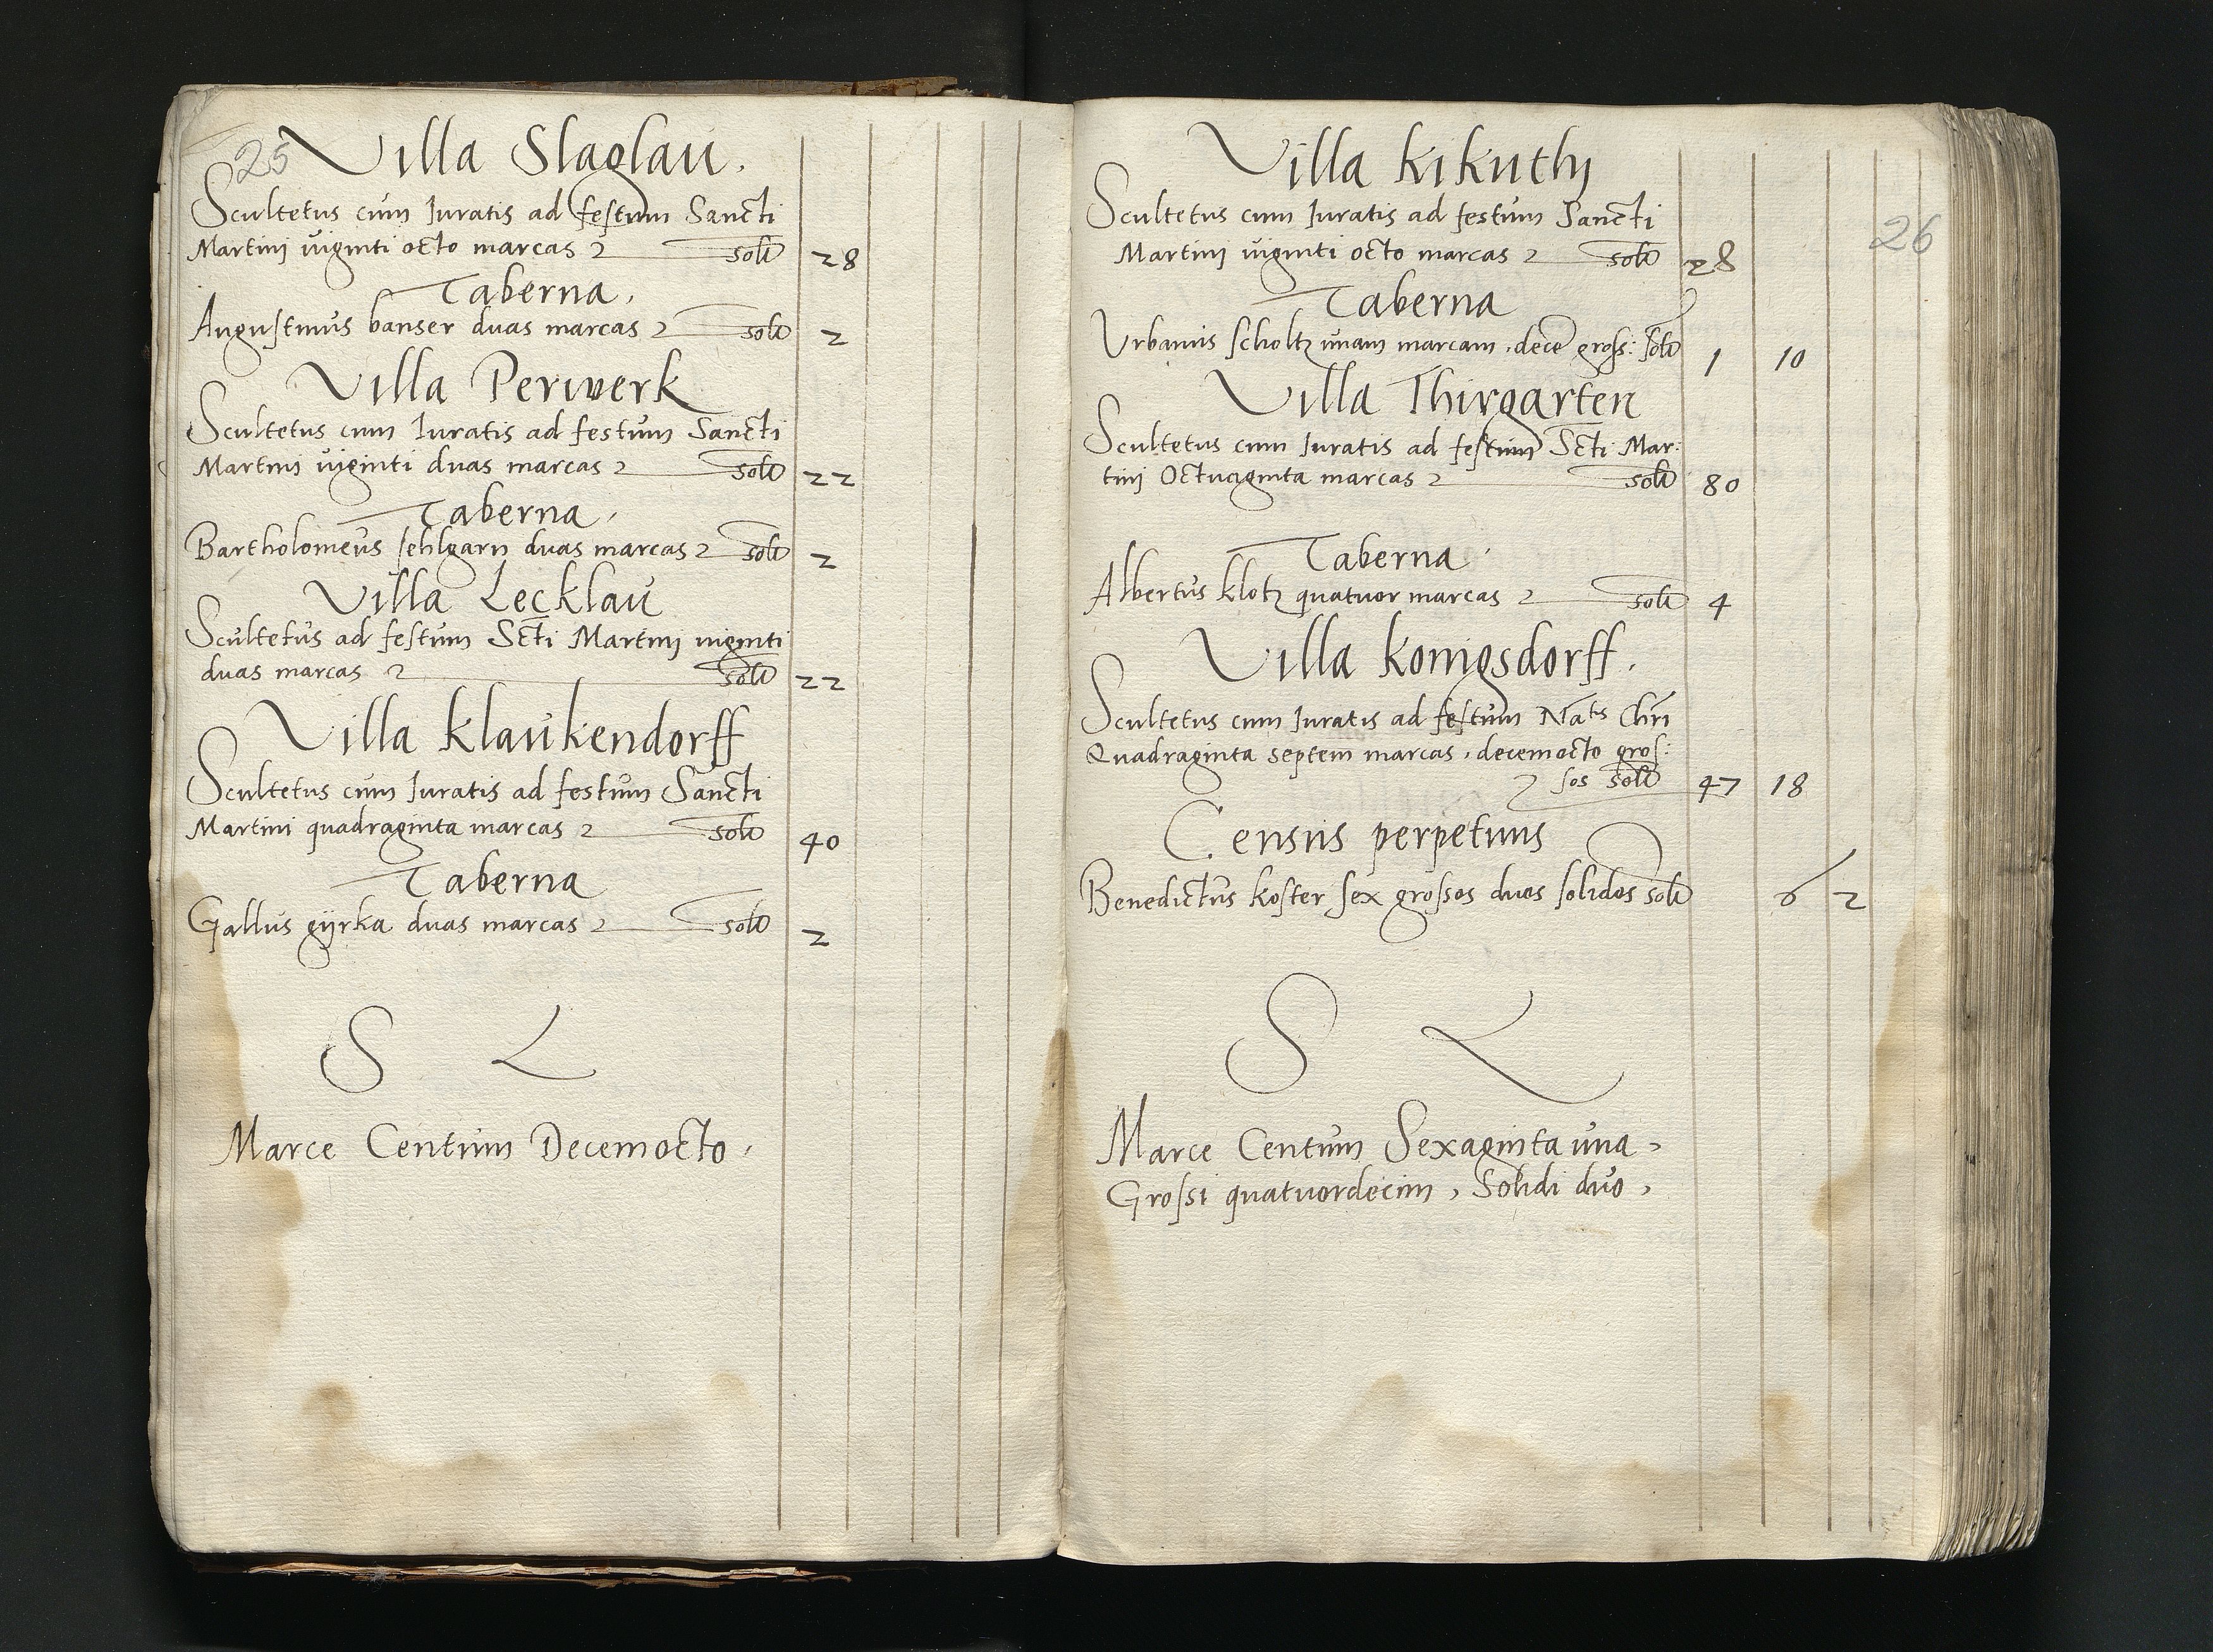 25
Villa Slaglau.
Scultetus cum Iuratis ad festum Sancti
Martinj viginti octo marcas 2 solt 28
Taberna.
Augustinus banser duas marcas 2 solt 2
Villa Perwerk
Scultetus cum Iuratis ad festum Sancti
Martinj viginti duas marcas 2 solt 22
Taberna.
Bartholomeus sehlgarn duas marcas 2 solt 2
Villa Lecklau
Scultetus ad festum Scti Martinj viginti
duas marcas 2 solt 22
Villa klaukendorff
Scultetus cum Iuratis ad festum Sancti
Martini quadraginta marcas 2 solt 40
Taberna
Gallus gyrka duas marcas 2 solt 2
S L
Marce Centum Decemocto.
26
Villa kikuthj
Scultetus cum Iuratis ad festum Sancti
Martinj viginti octo marcas 2 solt 28
Taberna
Urbanus scholtz unam marcam, decē gross: solt 1 10
Villa Thirgarten
Scultetus cum Iuratis ad festum Scti Mar:
tinj Octuaginta marcas 2 solt 80
Taberna.
Albertus klotz quatuor marcas 2 solt 4
Villa konigsdorff.
Scultetus cum Iuratis ad festum Natis Chri
Quadraginta septem marcas, decemocto gros:
2 sos solt 47 18
Census perpetuus
Benedictus koster sex grossos duos solidos solt 6 2
S L
Marce Centum Sexaginta una,
Grossi quatuordecim, Solidi duo,